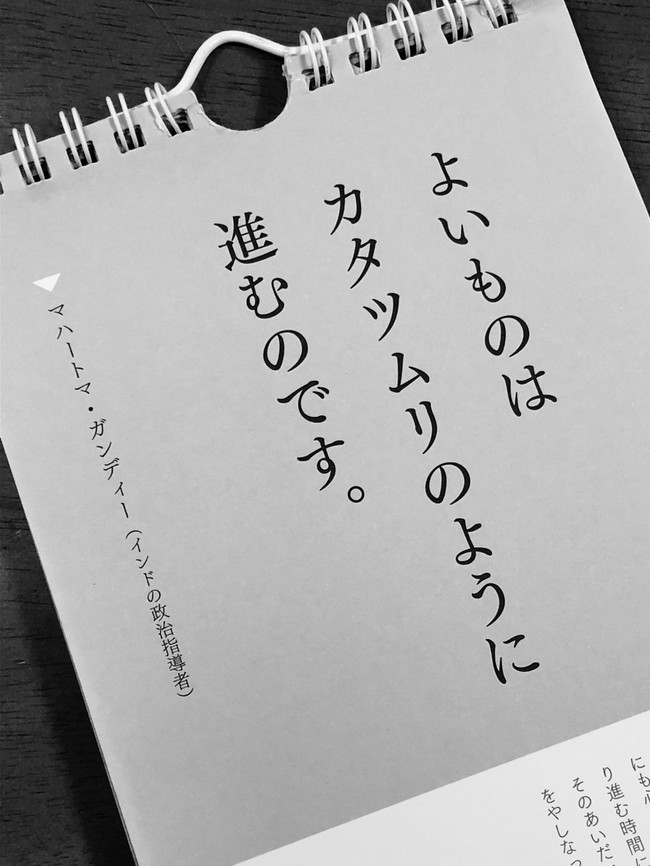 よいものは
カタツムリのように
進むのです。
マハートマ・ガンディー（インドの政治指導者）
にも心
り進む時間に
そのあいだ
をやしなっ